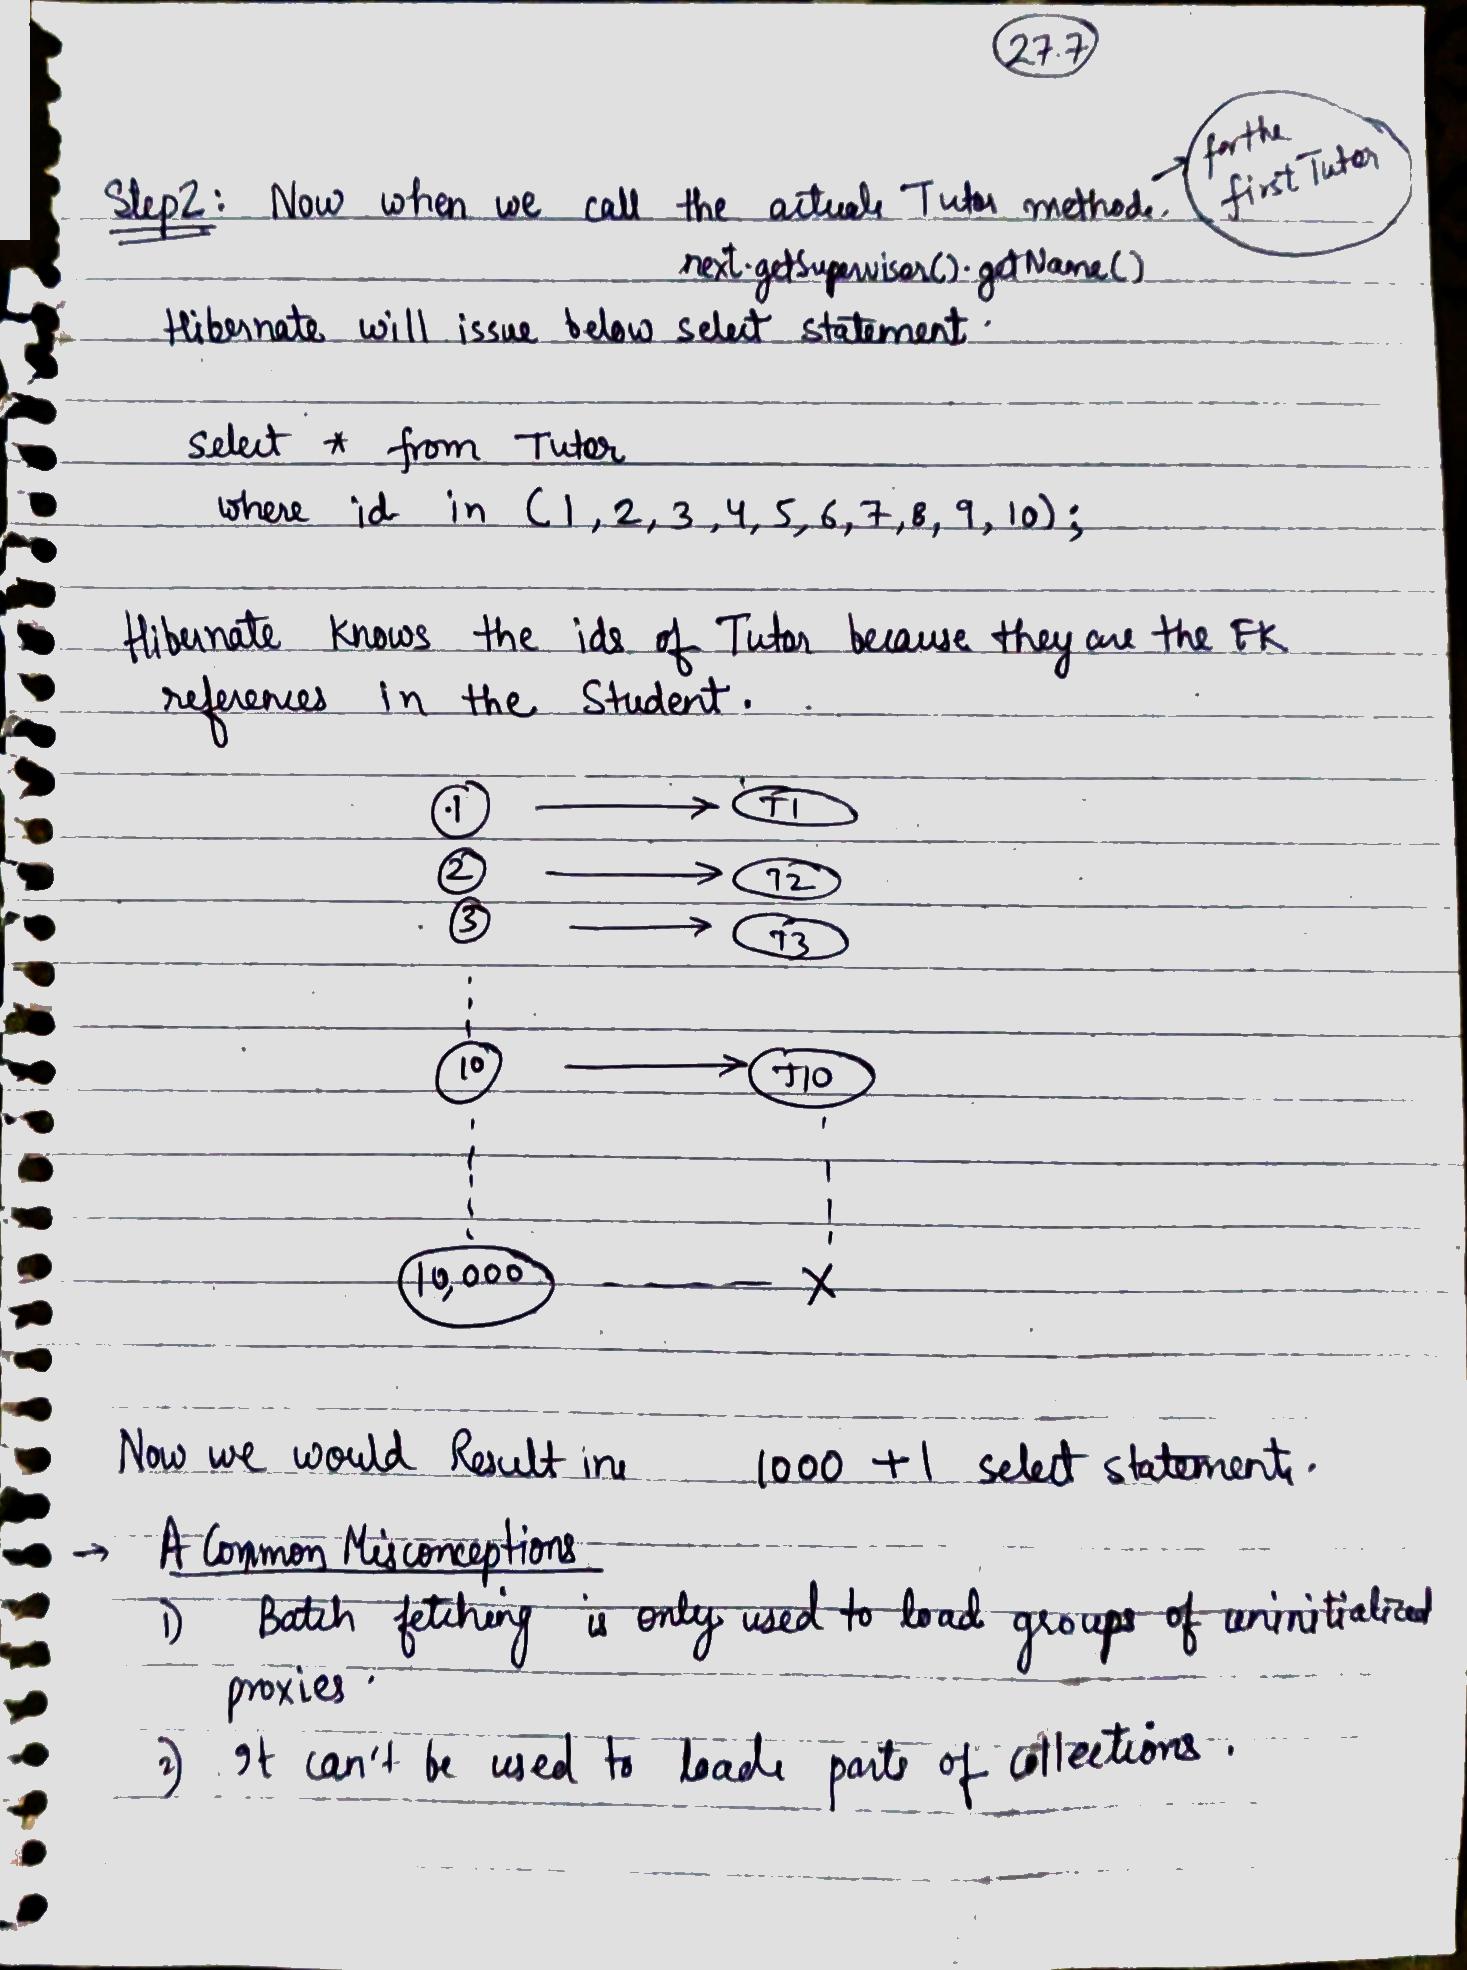 27.7
for the
first Tutor
Step2: Now when we call the actual Tutor method.
next.getSupervisor().getName()
Hibernate will issue below select statement.
select * from Tutor
where id in (1,2,3,4,5,6,7,8,9,10);
Hibernate knows the ids of Tutor because they are the FK
references in the Student.
1 → T1
2 → T2
3 → T3
10 → T10
10,000 — X
Now we would Result in 1000 +1 select statement.
→ A Common Misconceptions
1) Batch fetching is only used to load groups of uninitialized
proxies.
2) It can't be used to load parts of collections.